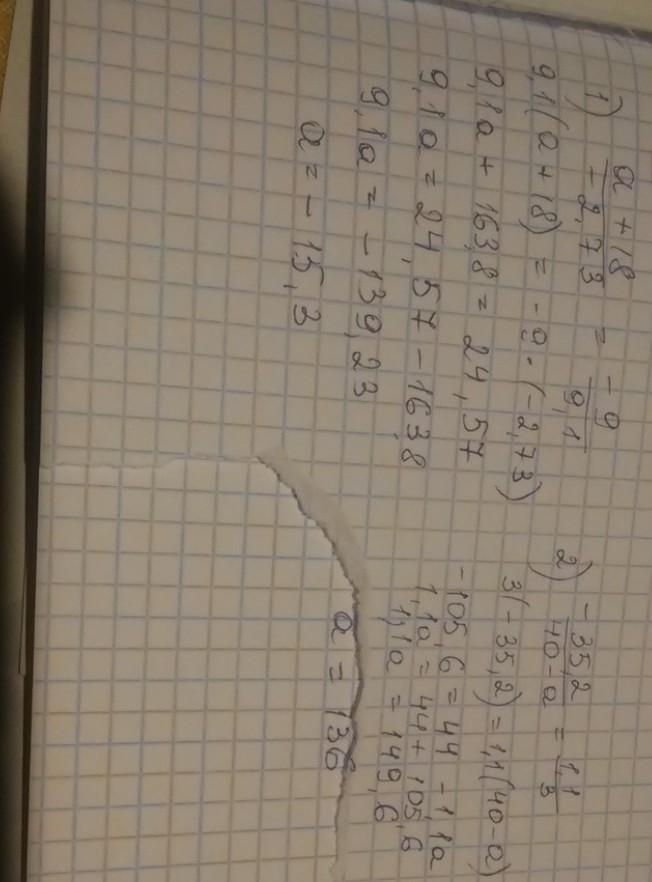 1) a + 18 / - 2,73 = - 9 / 9,1
9,1(a + 18) = - 9 · (-2,73)
9,1a + 163,8 = 24,57
9,1a = 24,57 - 163,8
9,1a = - 139,23
a = - 15,3
2) - 35,2 / 40 - a = 1,1 / 3
3(- 35,2) = 1,1(40 - a)
-105,6 = 44 - 1,1a
1,1a = 44 + 105,6
1,1a = 149,6
a = 136